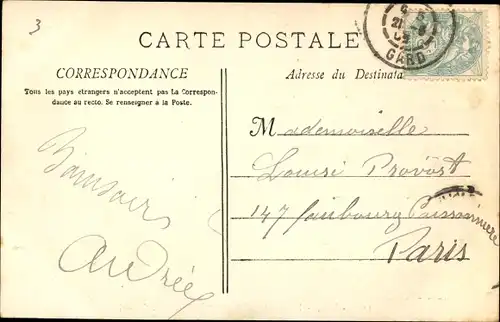 3
CARTE POSTALE
GARD
CORRESPONDANCE
Adresse du Destinata
Tous les pays étrangers n'acceptent pas la Correspon-
dance au recto. Se renseigner à la Poste.
Mademoiselle
Louise Provost
147 faubourg Poissonnière
Paris
Bonsoir
Andrée